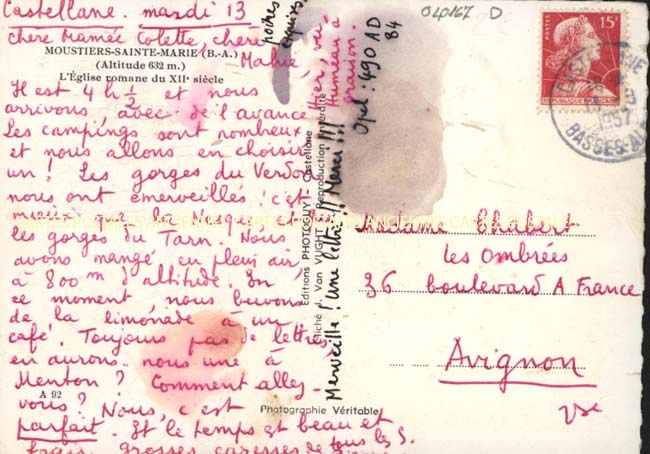 Castellane. mardi 13
chère Mamée Colette, chère Mahie,
MOUSTIERS-SAINTE-MARIE (B.-A.)
(Altitude 632 m.)
L'Église romane du XIIe siècle
Il est 4 h ½ et nous
arrivons, avec de l'avance
Les campings sont nombreux
et nous allons en choisir
un ! Les gorges du Verdon
nous ont émerveillés : c'est
mieux que la Nesque,
les gorges du Tarn. Nous
avons mangé en plein air,
à 800m d'altitude. En
ce moment nous buvons
de la limonade à un
café. Toujours pas de lettres
en aurons-nous une à
Menton ? Comment allez-
vous ? Nous, c'est
A 92
parfait. Et le temps est beau et
frais. Grosses caresses de tous les 5.
poires
exquises
Hier, vu
Humeau à
graison.
Opel : 490 AD
84
Merveille ! Une lettre !! Merci !!!
Editions PHOTOGUY - Castellane
Cliché J. Van VUGHT Reproduction Interdite
Photographie Véritable
040167 D
POSTES
15F
REPUBLIQUE FRANÇAISE
1957
BASSES-AL
Madame Chabert
les Ombrées
36 boulevard A France
Avignon
Vse